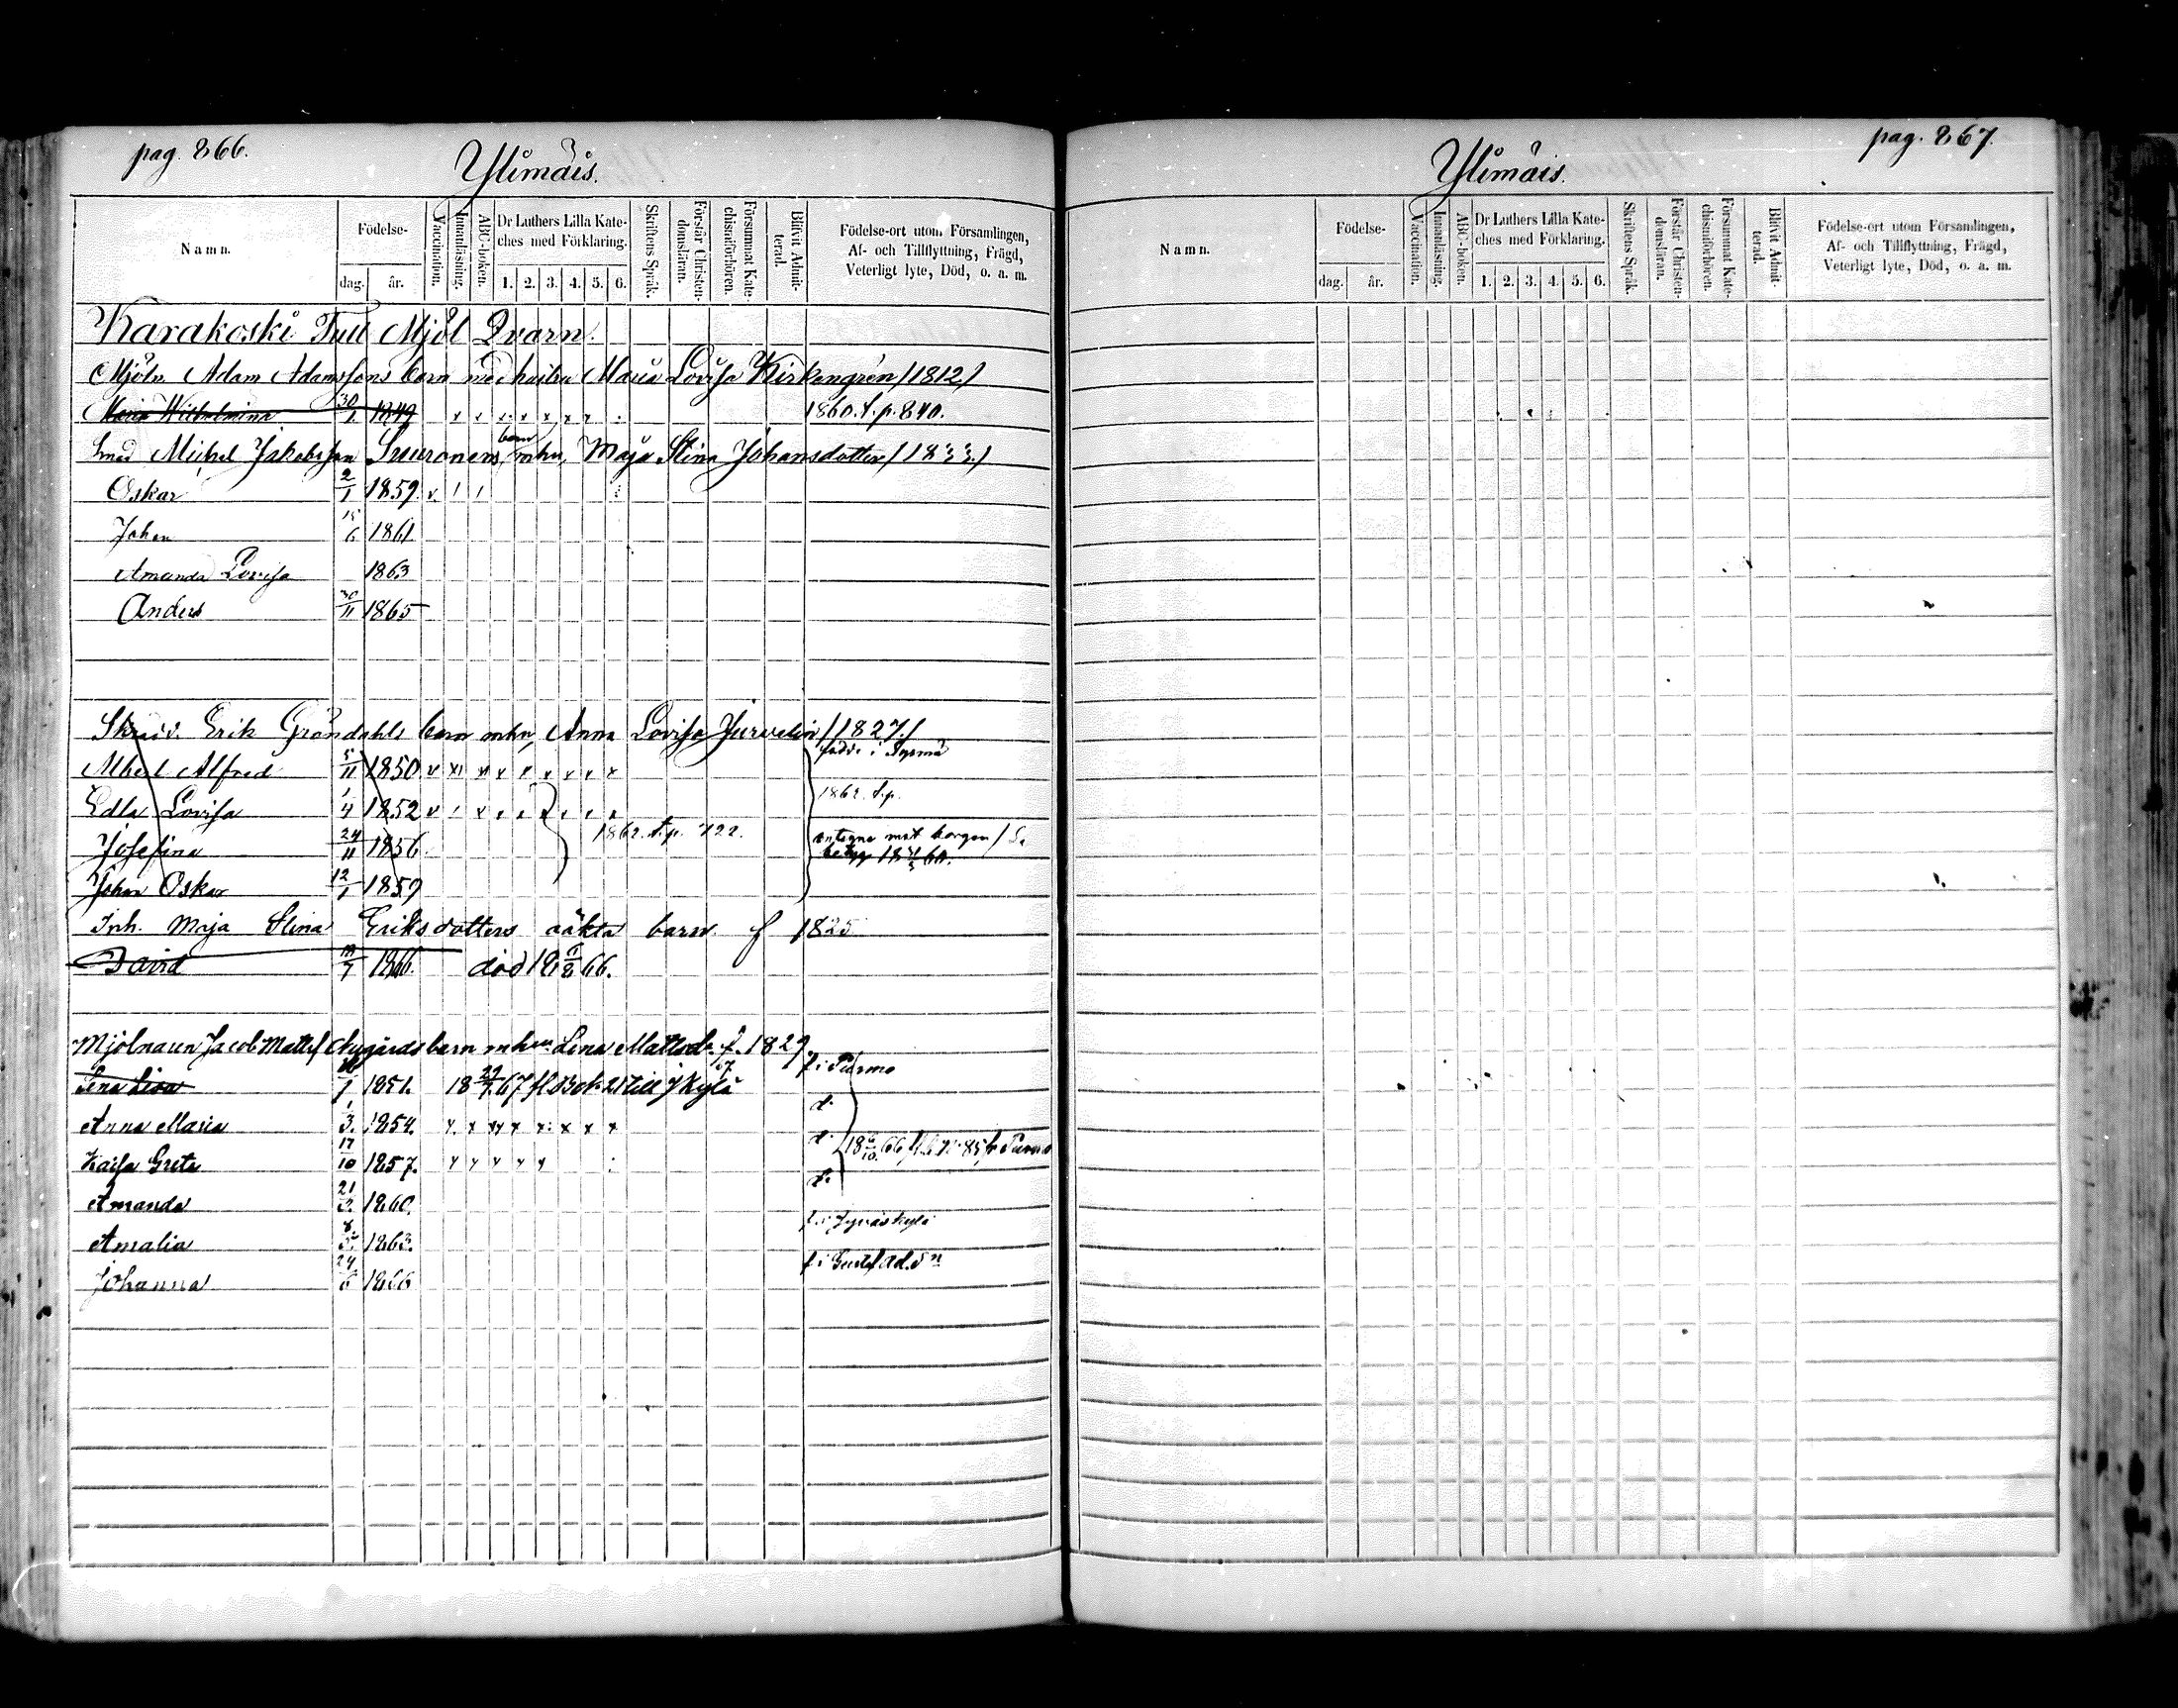 pag. 866.
Ylimäis.
Namn.
Födelse-
dag. år.
Vaccination.
Innanläsning.
ABC-boken.
Dr Luthers Lilla Kate-
ches med Förklaring.
1. 2. 3. 4. 5. 6.
Skriftens Språk.
Förstår Christen-
domsläran.
Försummat Kate-
chismiförhören.
Blifvit Admit-
terad.
Födelse-ort utom Församlingen,
Af- och Tillflyttning, Frägd,
Veterligt lyte, Död, o. a. m.
Karakoski Tull Mjöl Qvarn.
Mjöln. Adam Adamssons barn med Maria Lovisa Kirkengrén /1812/
Maria Wilhelmina 30/1 1849 1860. t. p. 840.
Smed Michel Jakobsson barn mhu, Maja Stina Johansdotter
Oskar 2/1 1859
Johan 15/6 1861
Amanda Lovisa 1863
Anders 30/11 1865
Erik Gröndahls barn mhu, Anna Lovisa /1827/
födde i Sysmä
Alfred 5/11 1850
Edla Lovisa 1/4 1852 1862. t. p.
Josefina 24/11 1856 1862. t. p. 722.
Johan Oskar 12/1 1859
Inh. Maja Stina Eriksdotters oäkta barn f 1825
David 1866. död 66.
Mjölnaren Jacob Matts barn mhu Lena Mattsdr f. 1829
Lena Lisa 1851. 18 29/7 67 fl. till Jkylä f. i Purmo
Anna Maria 1/3 1854. d:
Kaisa Greta 17/10 1857. d:
Amanda 21/3 1860. d:
Amalia 8/5 1863. f. i Jyväskylä
Johanna 24/6 1866 f. i
pag. 867.
Ylimäis.
Namn.
Födelse-
dag. år.
Vaccination.
Innanläsning.
ABC-boken.
Dr Luthers Lilla Kate-
ches med Förklaring.
1. 2. 3. 4. 5. 6.
Skriftens Språk.
Förstår Christen-
domsläran.
Försummat Kate-
chismiförhören.
Blifvit Admit-
terad.
Födelse-ort utom Församlingen,
Af- och Tillflyttning, Frägd,
Veterligt lyte, Död, o. a. m.